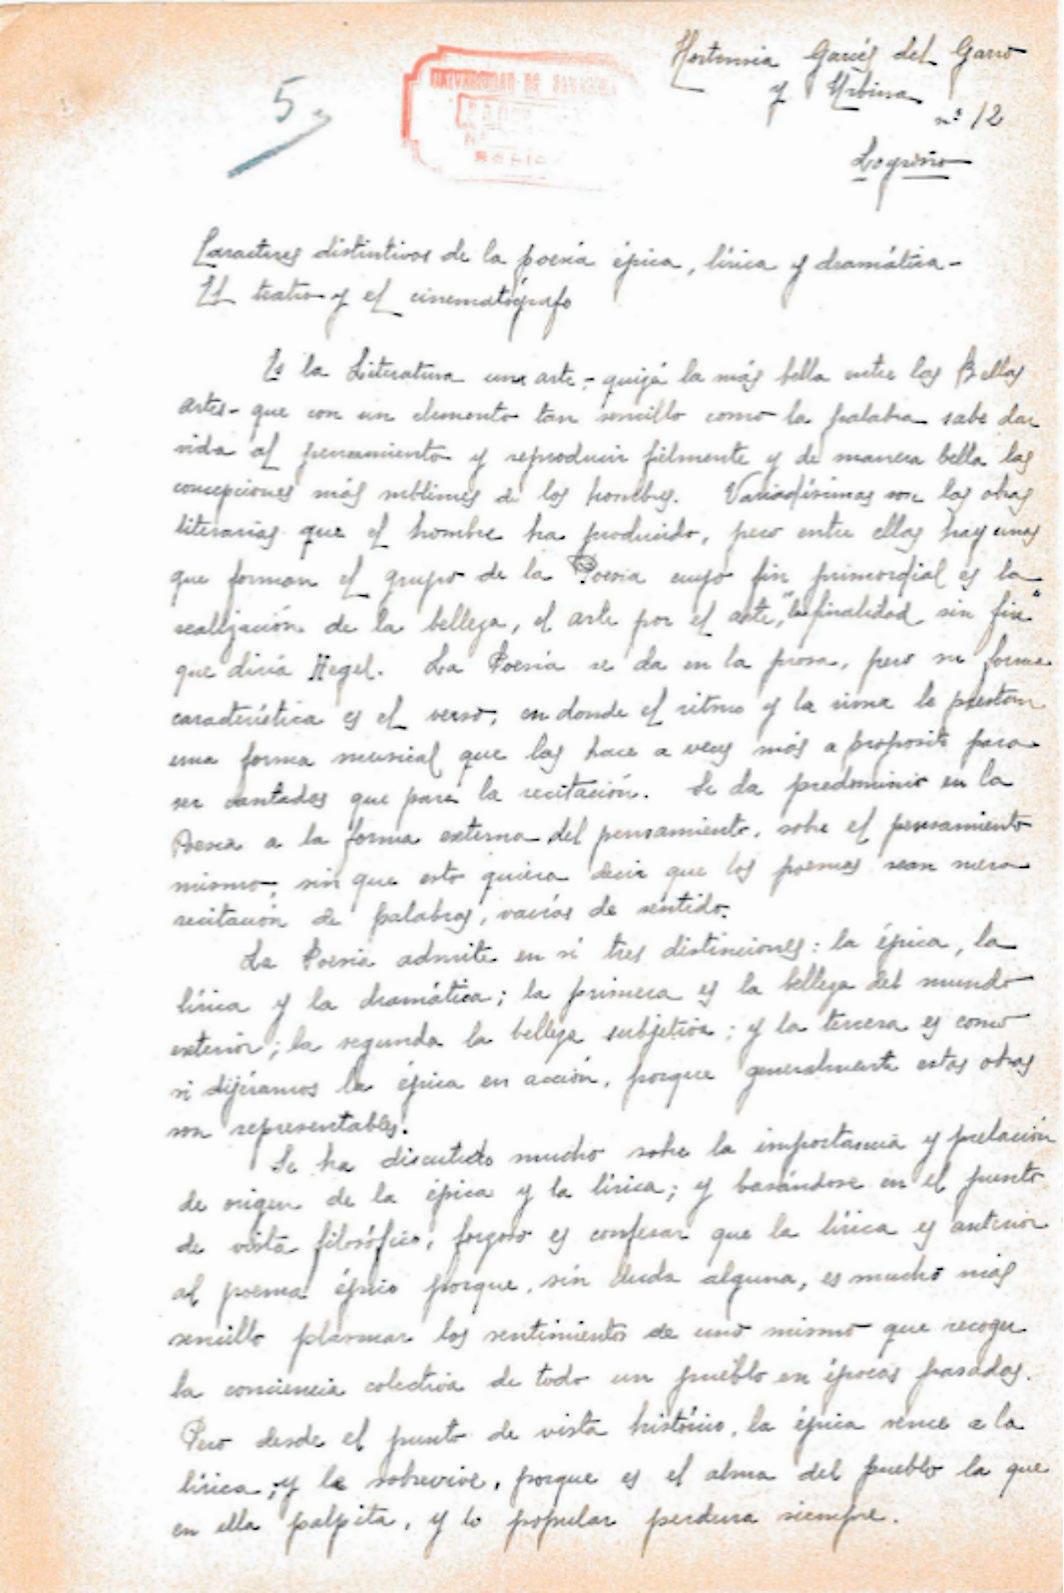 Hortensia Garcés del Garro
y Urbina
nº 12
Logroño
5
UNIVERSIDAD DE
Caracteres distintivos de la poesía épica, lírica y dramática-
El teatro y el cinematógrafo
Es la Literatura una arte - quizá la más bella entre las Bellas
artes - que con un elemento tan sencillo como la palabra sabe dar
vida al pensamiento y reproducir fielmente y de manera bella las
concepciones más sublimes de los hombres. Variadísimas son las obras
literarias que el hombre ha producido, pero entre ellas hay unas
que forman el grupo de la Poesía cuyo fin primordial es la
realización de la belleza, el arte por el arte, "la finalidad sin fin"
que diría Hegel. La Poesía se da en la prosa, pero su forma
característica es el verso, en donde el ritmo y la rima le prestan
una forma musical que las hace a veces más a proposito para
ser cantadas que para la recitación. Se da predominio en la
Poesia a la forma externa del pensamiento, sobre el pensamiento
mismo, sin que esto quiera decir que los poemas sean mera
recitación de palabras, vacías de sentido.
La Poesia admite en si tres distinciones: la épica, la
lírica y la dramática; la primera es la belleza del mundo
exterior; la segunda la belleza subjetiva; y la tercera es como
si dijéramos la épica en acción, porque generalmente estas obras
son representables.
Se ha discutido mucho sobre la importancia y prelación
de origen de la épica y la lírica; y basándose en el punto
de vista filosófico, forzoso es confesar que la lírica es anterior
al poema épico porque, sin duda alguna, es mucho más
sencillo plasmar los sentimientos de uno mismo que recoger
la conciencia colectiva de todo un pueblo en épocas pasadas.
Pero desde el punto de vista histórico, la épica vence a la
lírica, y la sobrevive, porque es el alma del pueblo la que
en ella palpita, y lo popular perdura siempre.